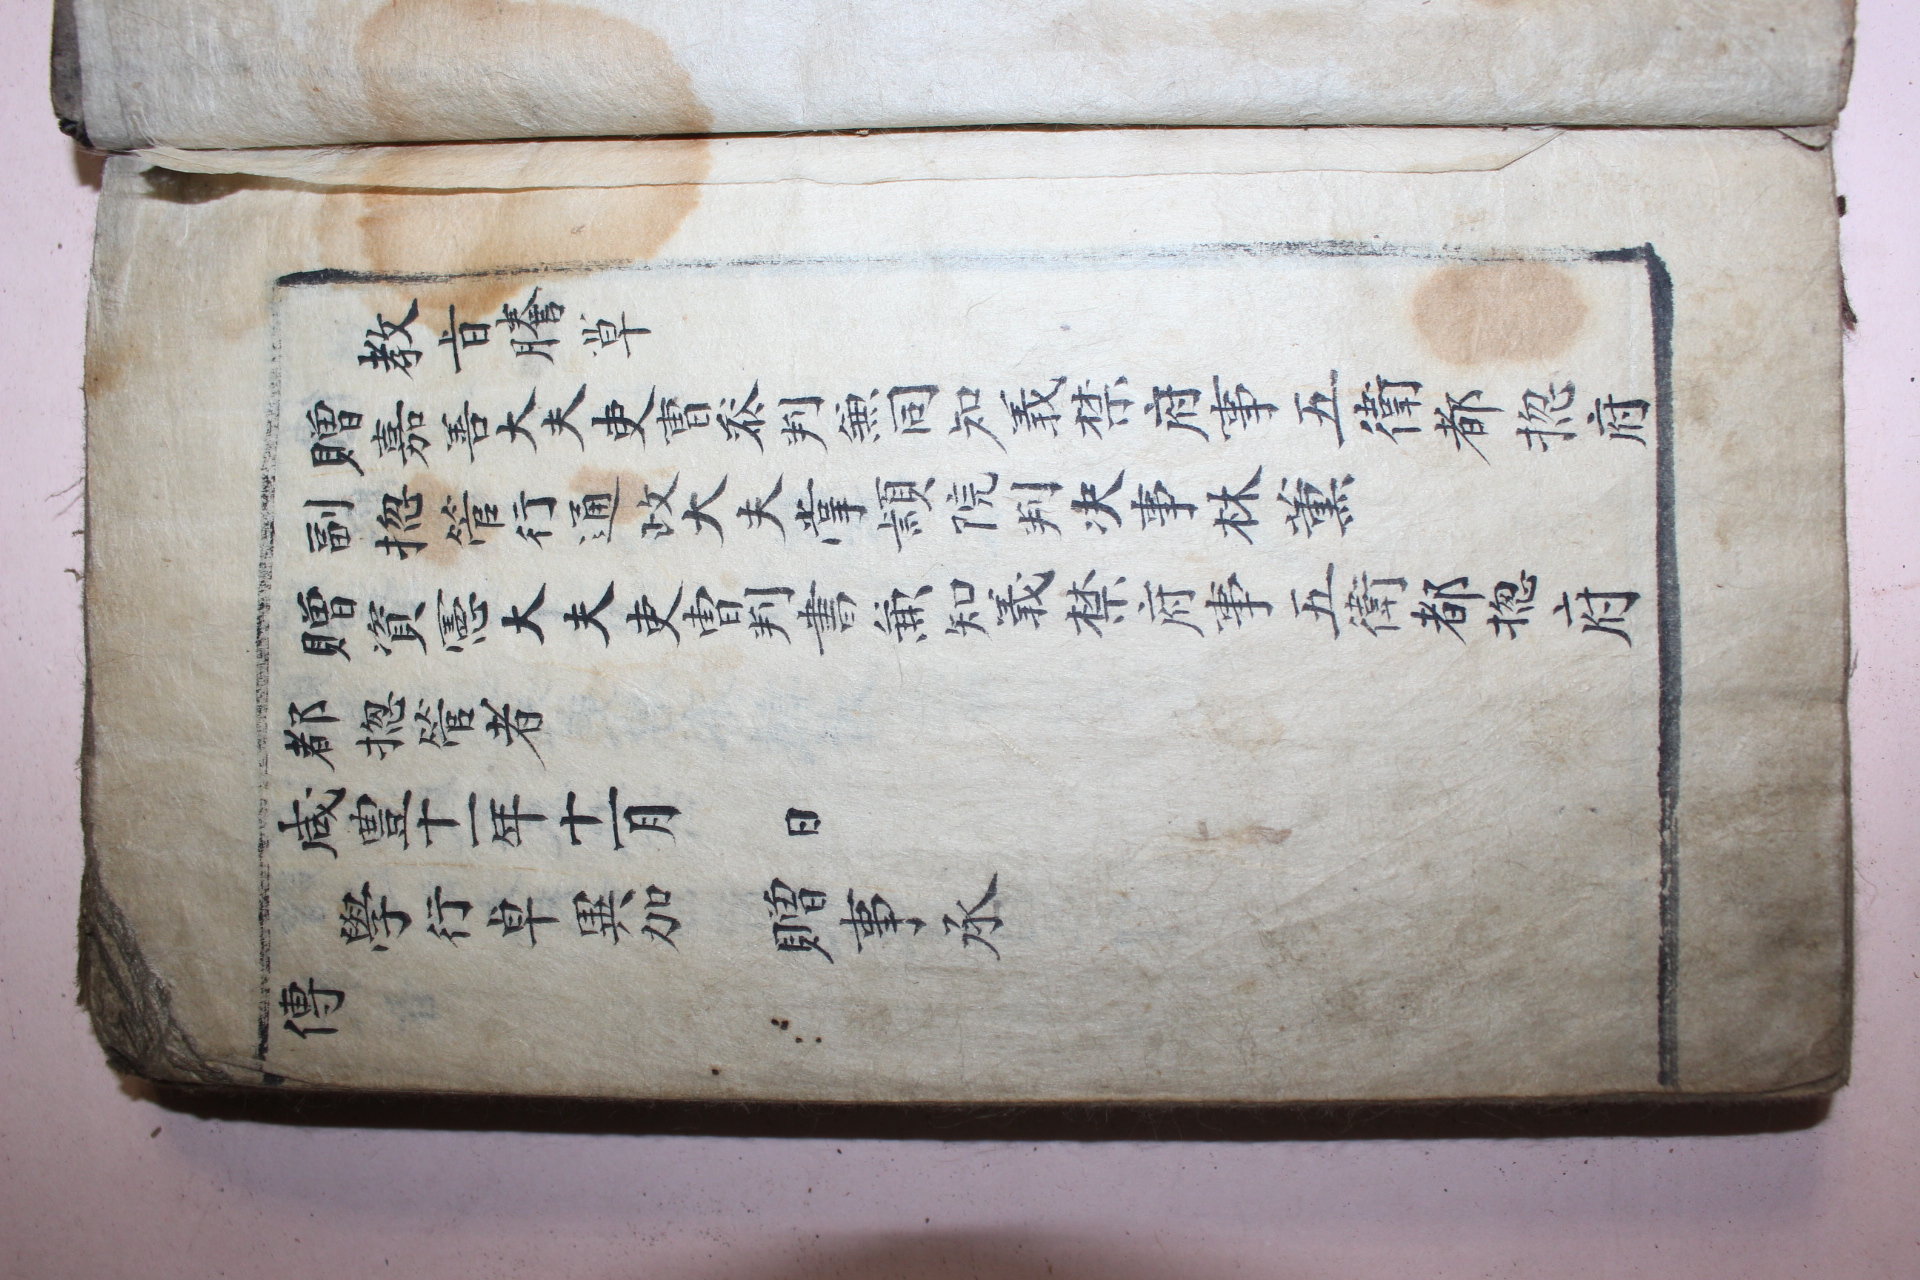 教旨謄草
贈嘉善大夫吏曹叅判兼同知義禁府事五衛都摠府
副摠管行通政大夫掌隷院判决事林薫
贈資憲大夫吏曹判書兼知義禁府事五衛都摠府
都摠管者
咸豊十一年十一月　日
學行卓異加　贈事承
傳